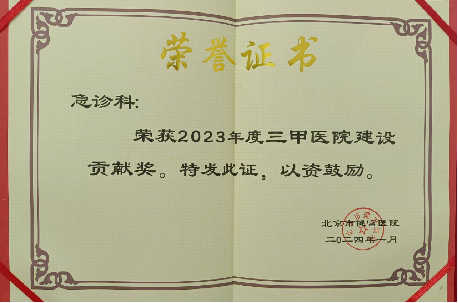 荣誉证书
急诊科:
荣获2023年度三甲医院建设
贡献奖。特发此证，以资鼓励。
北京市健宫医院
二〇二四年一月